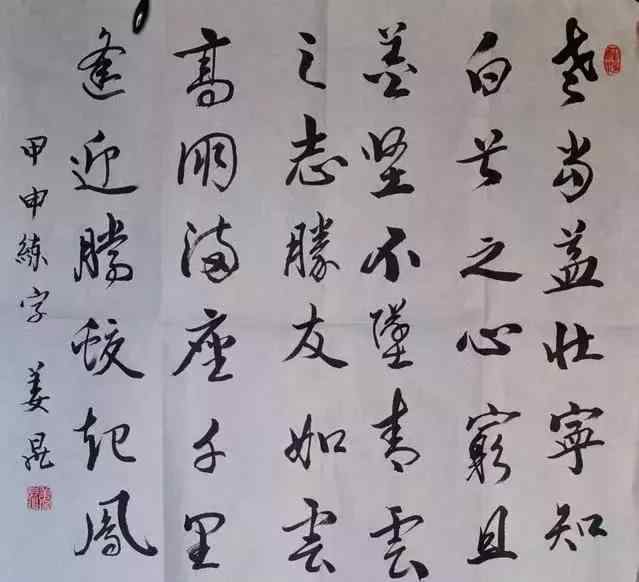 老当益壮寧知
白首之心窮且
益坚不墜青雲
之志勝友如雲
高朋满座千里
逢迎騰蛟起鳳
甲申練字 姜昆